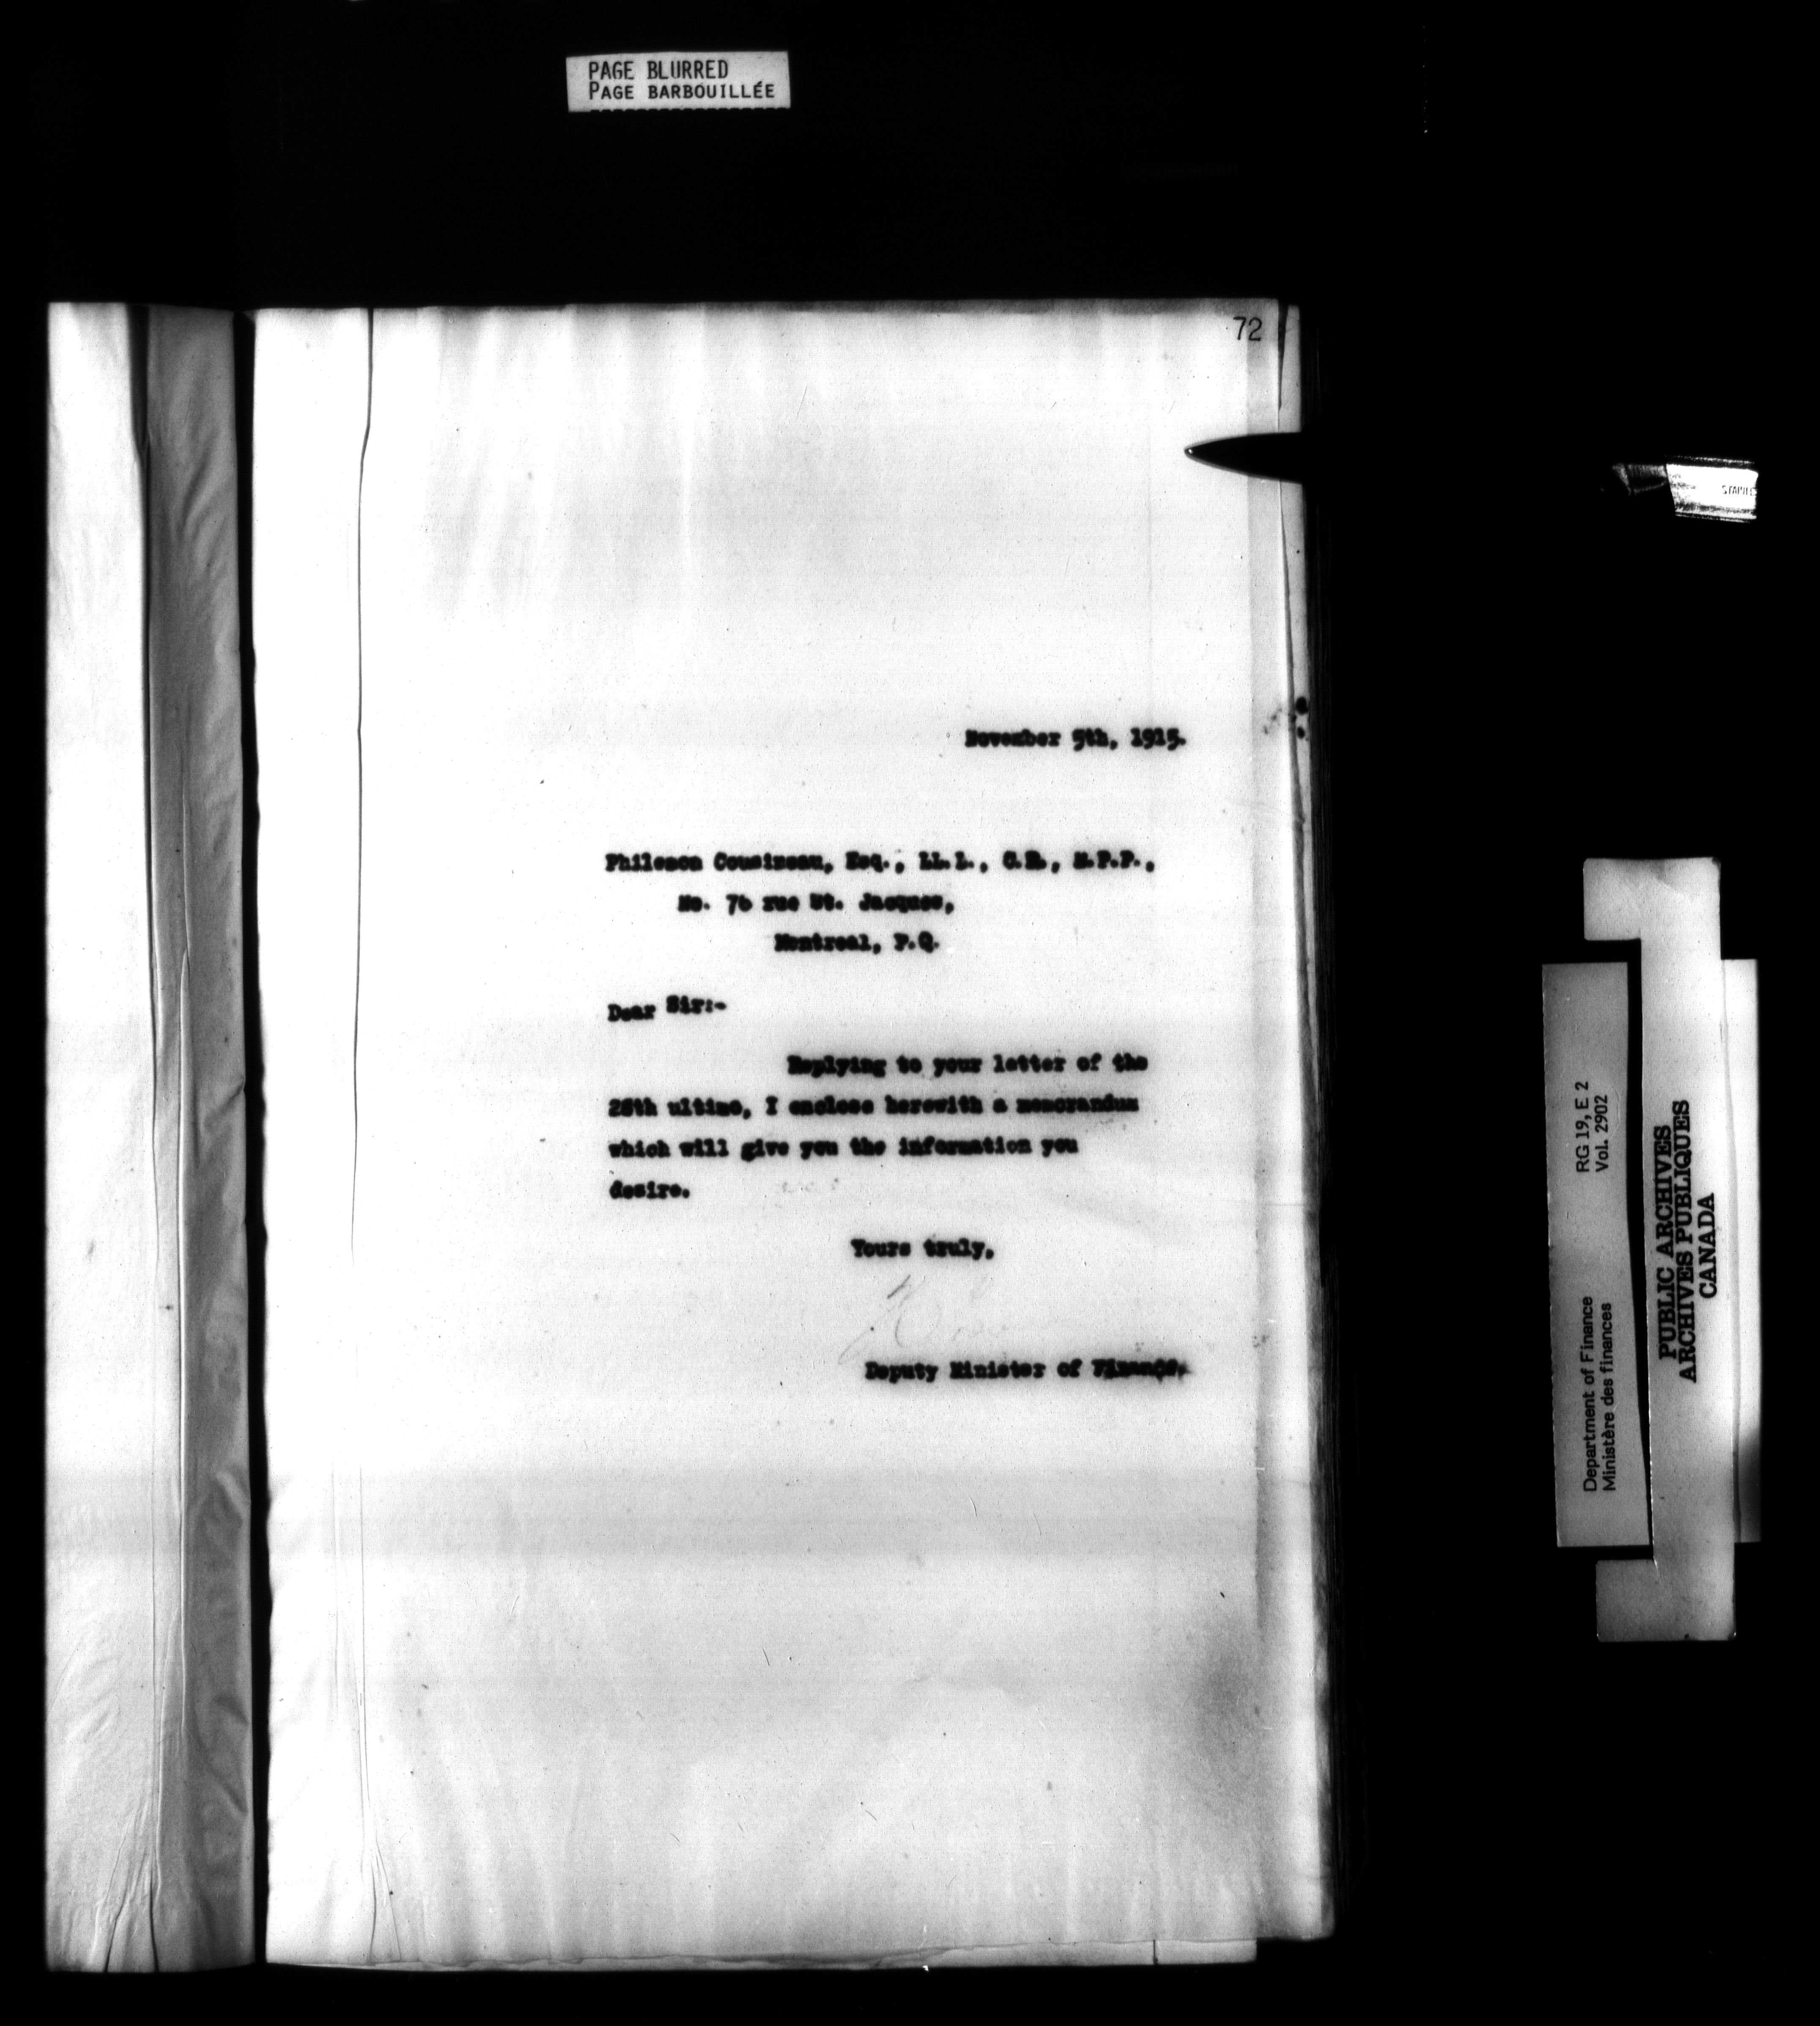 PAGE BLURRED
PAGE BARBOUILLÉE
72
November 5th, 1915.
Philemon Cousineau, Esq., LL.L., C.R., M.P.P.,
No. 76 rue St. Jacques,
Montreal, P.Q.
Dear Sir:-
Replying to your letter of the
28th ultimo, I enclose herewith a memorandum
which will give you the information you
desire.
Yours truly,
Deputy Minister of Finance.
Department of Finance RG 19, E 2
Ministère des finances Vol. 2902
PUBLIC ARCHIVES
ARCHIVES PUBLIQUES
CANADA